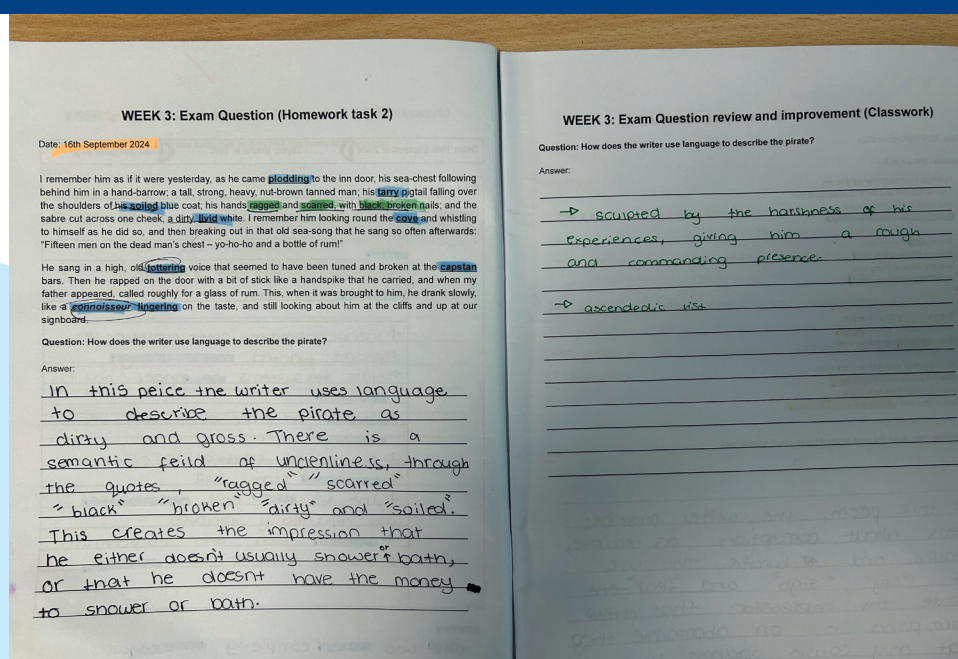 WEEK 3: Exam Question (Homework task 2)
Date: 16th September 2024
I remember him as if it were yesterday, as he came plodding to the inn door, his sea-chest following
behind him in a hand-barrow; a tall, strong, heavy, nut-brown tanned man; his tarry pigtail falling over
the shoulders of his soiled blue coat; his hands ragged and scarred, with black, broken nails; and the
sabre cut across one cheek, a dirty, livid white. I remember him looking round the cove and whistling
to himself as he did so, and then breaking out in that old sea-song that he sang so often afterwards:
“Fifteen men on the dead man's chest – yo-ho-ho and a bottle of rum!”
He sang in a high, old tottering voice that seemed to have been tuned and broken at the capstan
bars. Then he rapped on the door with a bit of stick like a handspike that he carried, and when my
father appeared, called roughly for a glass of rum. This, when it was brought to him, he drank slowly,
like a connoisseur, lingering on the taste, and still looking about him at the cliffs and up at our
signboard.
Question: How does the writer use language to describe the pirate?
Answer:
In this peice the writer uses language
to describe the pirate as
dirty and gross. There is a
semantic feild of unclenliness, through
the quotes, "ragged" "scarred"
"black" "broken" "dirty" and "soiled".
This creates the impression that
he either doesn't usually shower or bath,
or that he doesnt have the money
to shower or bath.
WEEK 3: Exam Question review and improvement (Classwork)
Question: How does the writer use language to describe the pirate?
Answer:
→ sculpted by the harshness of his
experiences, giving him a rough
and commanding presence.
→ ascendedic list